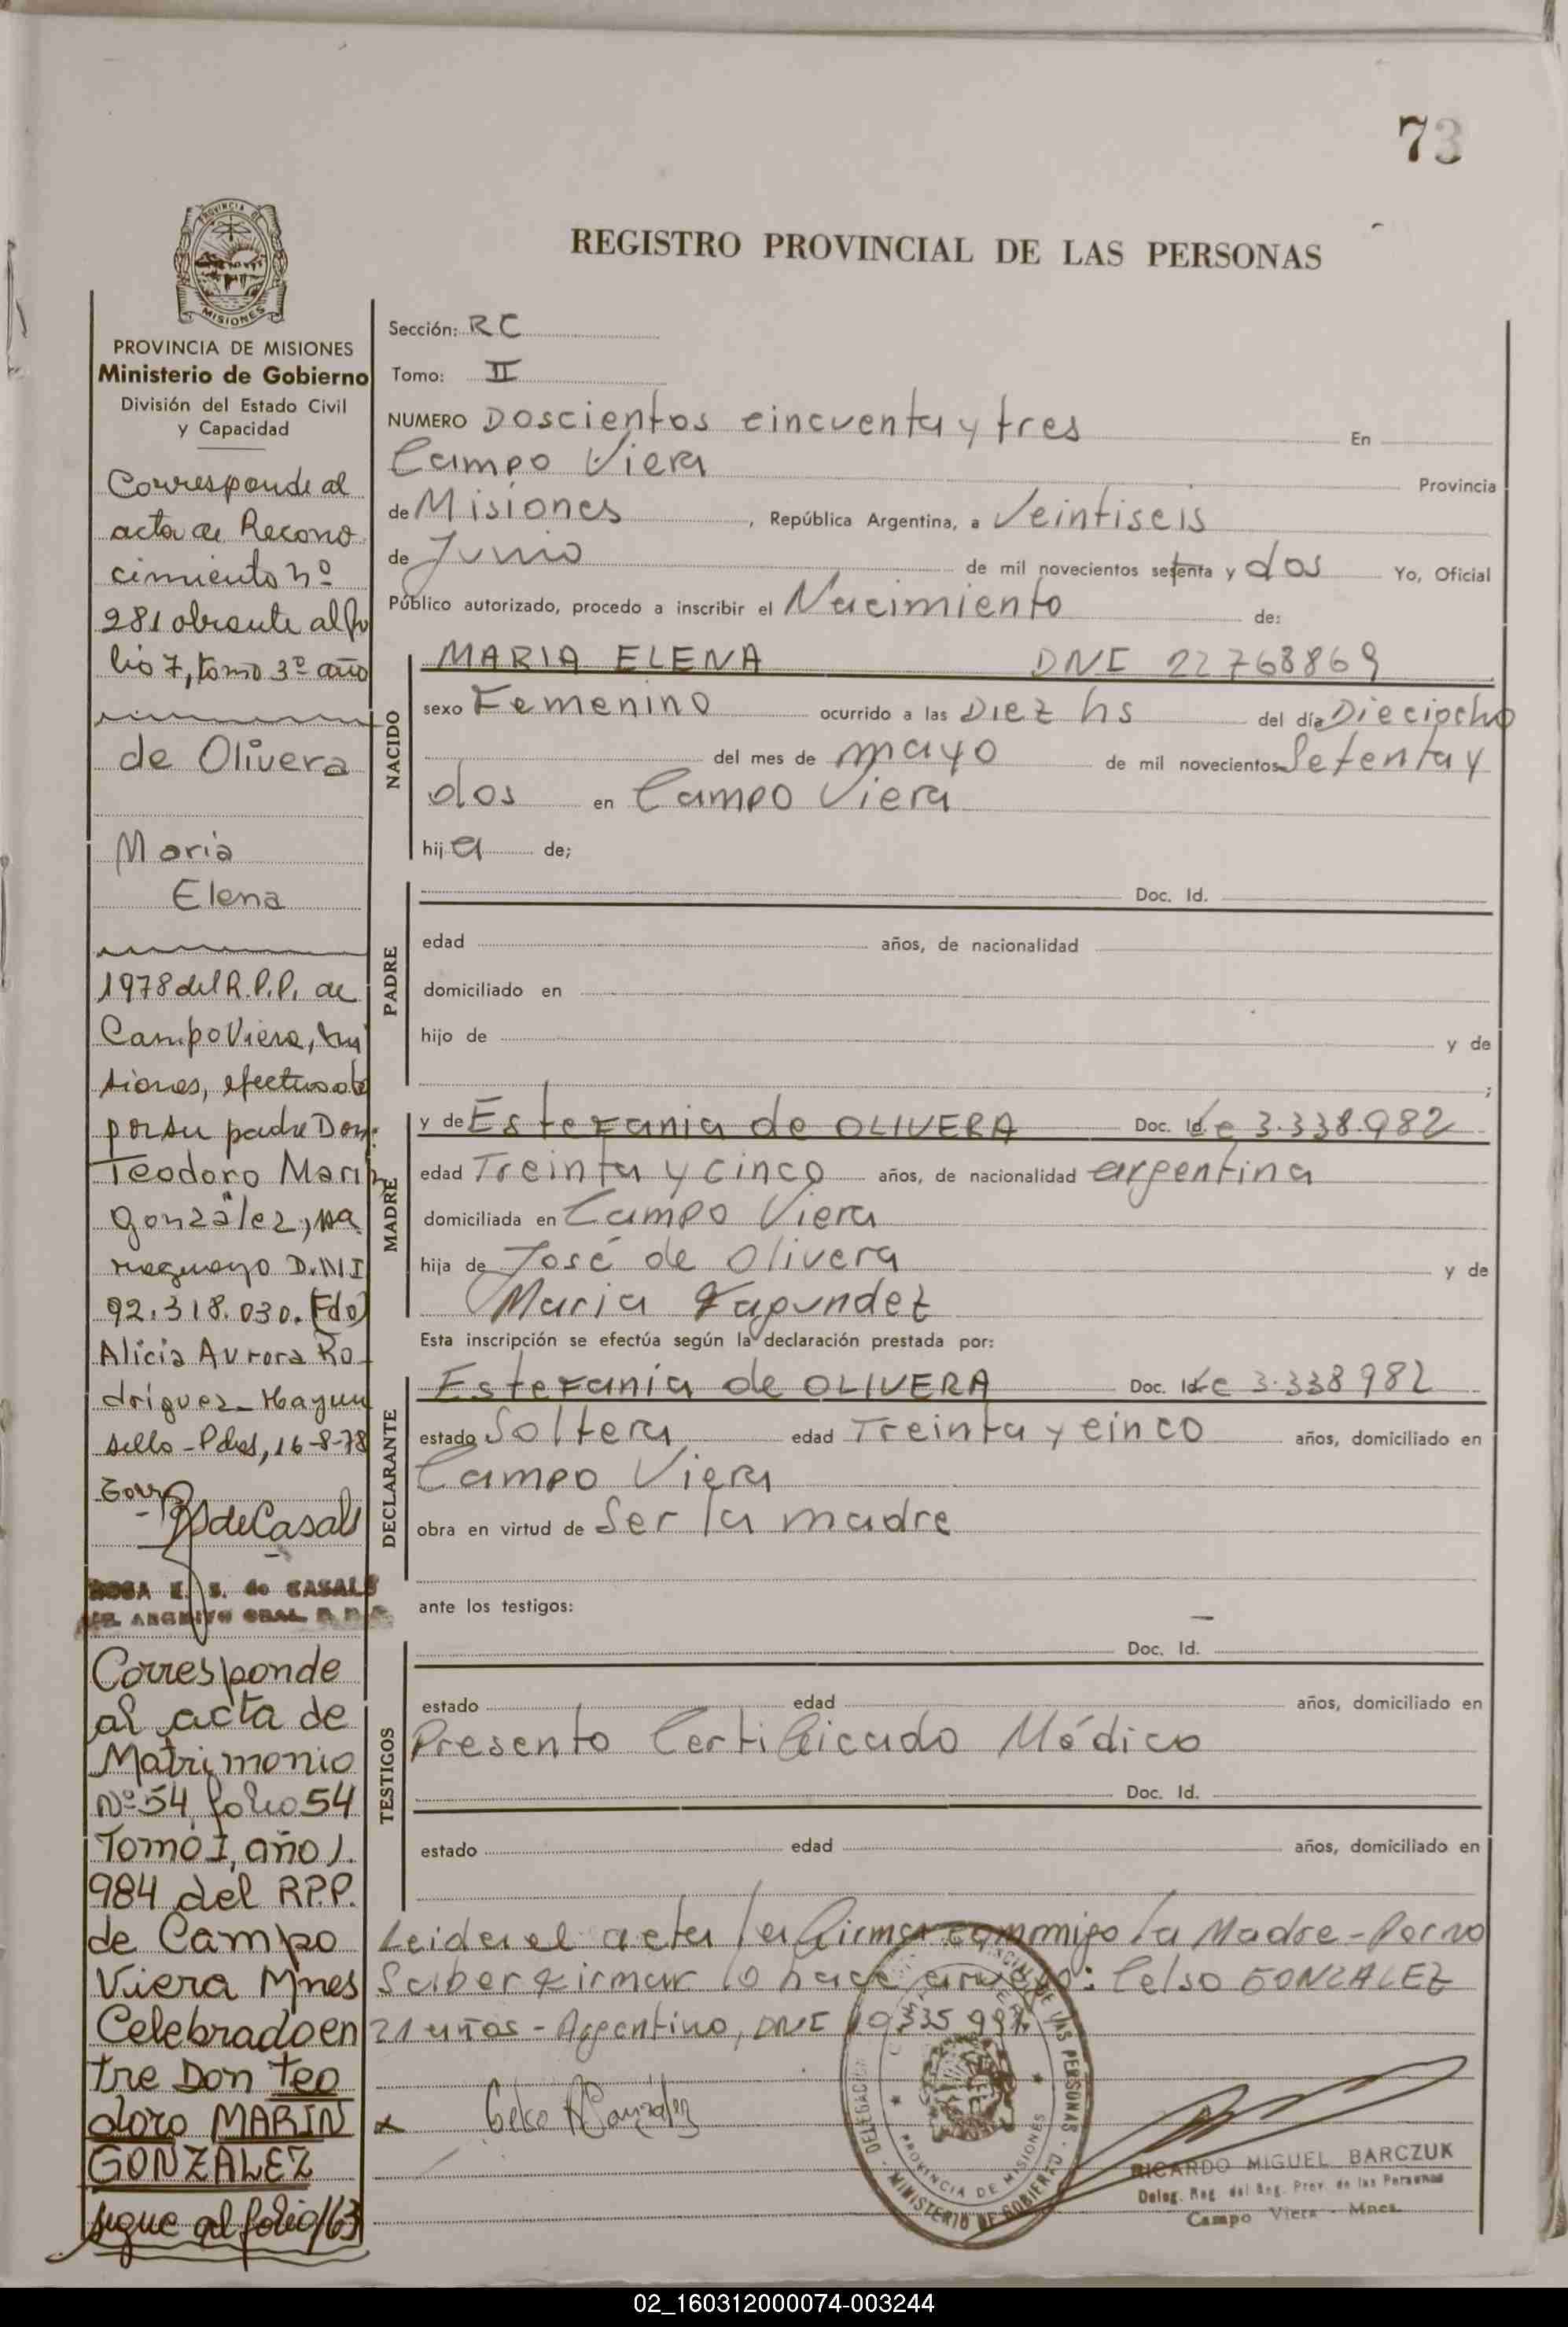 73
PROVINCIA DE
MISIONES
REGISTRO PROVINCIAL DE LAS PERSONAS
PROVINCIA DE MISIONES
Ministerio de Gobierno
División del Estado Civil
y Capacidad
Corresponde al
acta de Recono
cimiento nº
281 obrante al fo
lio 7, tomo 3º año
de Olivera
Maria
Elena
1978 del R.P.P. de
Campo Viera, Mi
siones, efectuado
por su padre Don:
Teodoro Marin
González, pa
raguayo D.N.I
92.318.030. (Fdo)
Alicia Aurora Ro
driguez - Hay un
sello - Pdas, 16-8-78
deCasals
ROSA E. S. de CASALS
Corresponde
al acta de
Matrimonio
Nº 54 folio 54
Tomo I, año 1.
984 del RPP.
de Campo
Viera Mnes
Celebrado en
tre Don Teo
doro MARIN
GONZALEZ
sigue al folio 163
Sección: RC
Tomo: II
NUMERO Doscientos cincuenta y tres En
Campo Viera Provincia
de Misiones, República Argentina, a Veintiseis
de Junio de mil novecientos setenta y dos Yo, Oficial
Público autorizado, procedo a inscribir el Nacimiento de:
NACIDO
MARIA ELENA DNI 22768869
sexo Femenino ocurrido a las Diez hs del día Dieciocho
del mes de mayo de mil novecientos Setenta y
dos en Campo Viera
hija de;
PADRE
Doc. Id.
edad años, de nacionalidad
domiciliado en
hijo de y de
;
MADRE
y de Estefania de OLIVERA Doc. Id. Lc 3.338.982
edad Treinta y cinco años, de nacionalidad argentina
domiciliada en Campo Viera
hija de José de Olivera y de
Maria Fagundez
Esta inscripción se efectúa según la declaración prestada por:
DECLARANTE
Estefania de OLIVERA Doc. Id. Lc 3.338982
estado Soltera edad Treinta y cinco años, domiciliado en
Campo Viera
obra en virtud de Ser la madre
ante los testigos:
TESTIGOS
Doc. Id.
estado edad años, domiciliado en
Presento Certificado Médico
Doc. Id.
estado edad años, domiciliado en
Leida el acta la firma conmigo la Madre - Por no
Saber firmar lo hace a ruego: Celso GONZALEZ
21 años - Argentino, DNI
Celso R González
DELEGACION PROVINCIAL DE LAS PERSONAS
PROVINCIA DE MISIONES
MINISTERIO DE GOBIERNO
RICARDO MIGUEL BARCZUK
Deleg. Reg. del Reg. Prov. de las Personas
Campo Viera - Mnes.
02_160312000074-003244